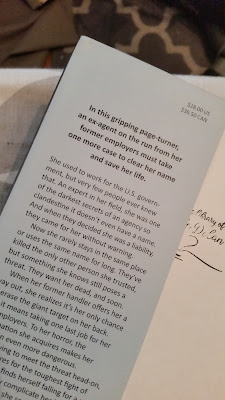 $28.00 US
$36.50 CAN
In this gripping page-turner,
an ex-agent on the run from her
former employers must take
one more case to clear her name
and save her life.
She used to work for the U.S. govern-
ment, but very few people ever knew
that. An expert in her field, she was one
of the darkest secrets of an agency so
clandestine it doesn't even have a name.
And when they decided she was a liability,
they came for her without warning.
Now she rarely stays in the same place
or uses the same name for long. They've
killed the only other person she trusted,
but something she knows still poses a
threat. They want her dead, and soon.
When her former handler offers her a
ay out, she realizes it's her only chance
erase the giant target on her back.
it means taking one last job for her
mployers. To her horror, the
ation she acquires makes her
n even more dangerous.
ing to meet the threat head-on,
res for the toughest fight of
finds herself falling for a
y complicate her
Library of